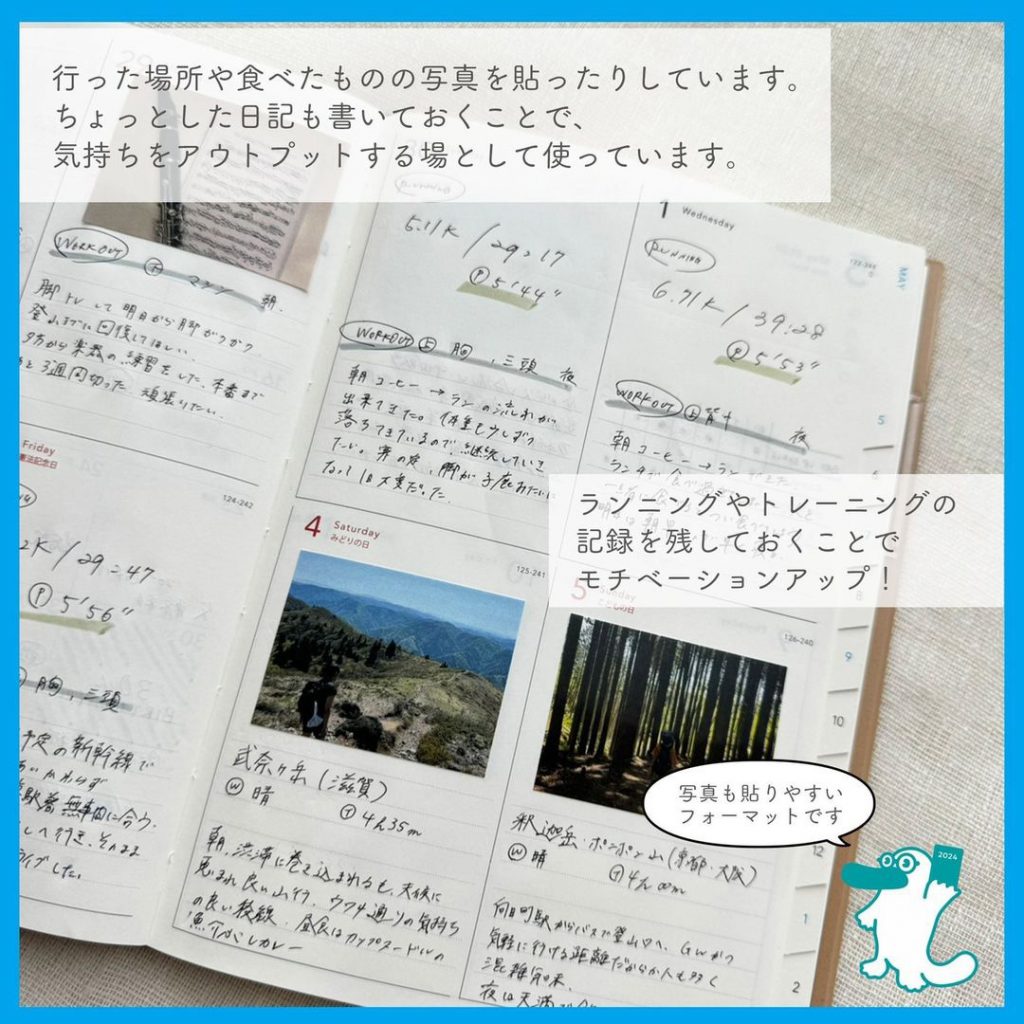 行った場所や食べたものの写真を貼ったりしています。
ちょっとした日記も書いておくことで、
気持ちをアウトプットする場として使っています。
WORKOUT 下 マシン 朝.
脚トレして明日から脚がガクガク
登山までに回復してほしい.
夕方から楽器の練習をした.本番まで
3週間切った 頑張りたい.
RUNNING
5.11K / 29:17
P 5'44"
WORKOUT 上 胸,三頭 夜
朝コーヒー→ランの流れが
出来てきた。体重も少しずつ
落ちてきているので継続していき
たい。案の定、脚が子鹿みたいに
なって大変だった.
1 Wednesday
122-244
MAY
RUNNING
6.71K / 39:28
P 5'53"
WORKOUT 上 背中 夜
朝コーヒー→ラン
ランニングやトレーニングの
記録を残しておくことで
モチベーションアップ！
Friday
憲法記念日
124-242
2K / 29:47
P 5'56"
胸,三頭
予定の新幹線で
あいかわらず
4 Saturday
みどりの日
125-241
武奈ヶ岳（滋賀）
W 晴 T 4h35m
朝,渋滞に巻き込まれるも,天候に
恵まれ良い山行.ウワサ通りの気持ち
の良い稜線.昼食はカップヌードルの
5 Sunday
こどもの日
126-240
釈迦岳・ポンポン山（京都・大阪）
W 晴 T 4h00m
向日町駅からバスで登山口へ.GWかつ
気軽に行ける距離だからか人も多く
混雑気味.
5
6
8
9
10
12
1
2
写真も貼りやすい
フォーマットです
2024